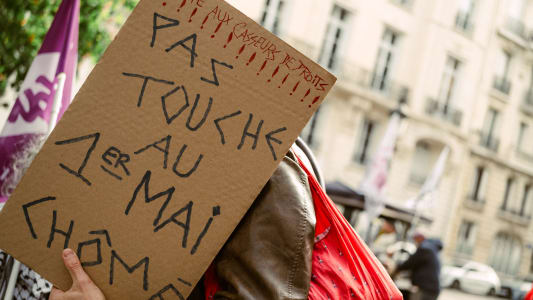 AUX CASSEURS DE DROITS !!!
PAS
TOUCHE
AU
1ER MAI
CHÔMÉ